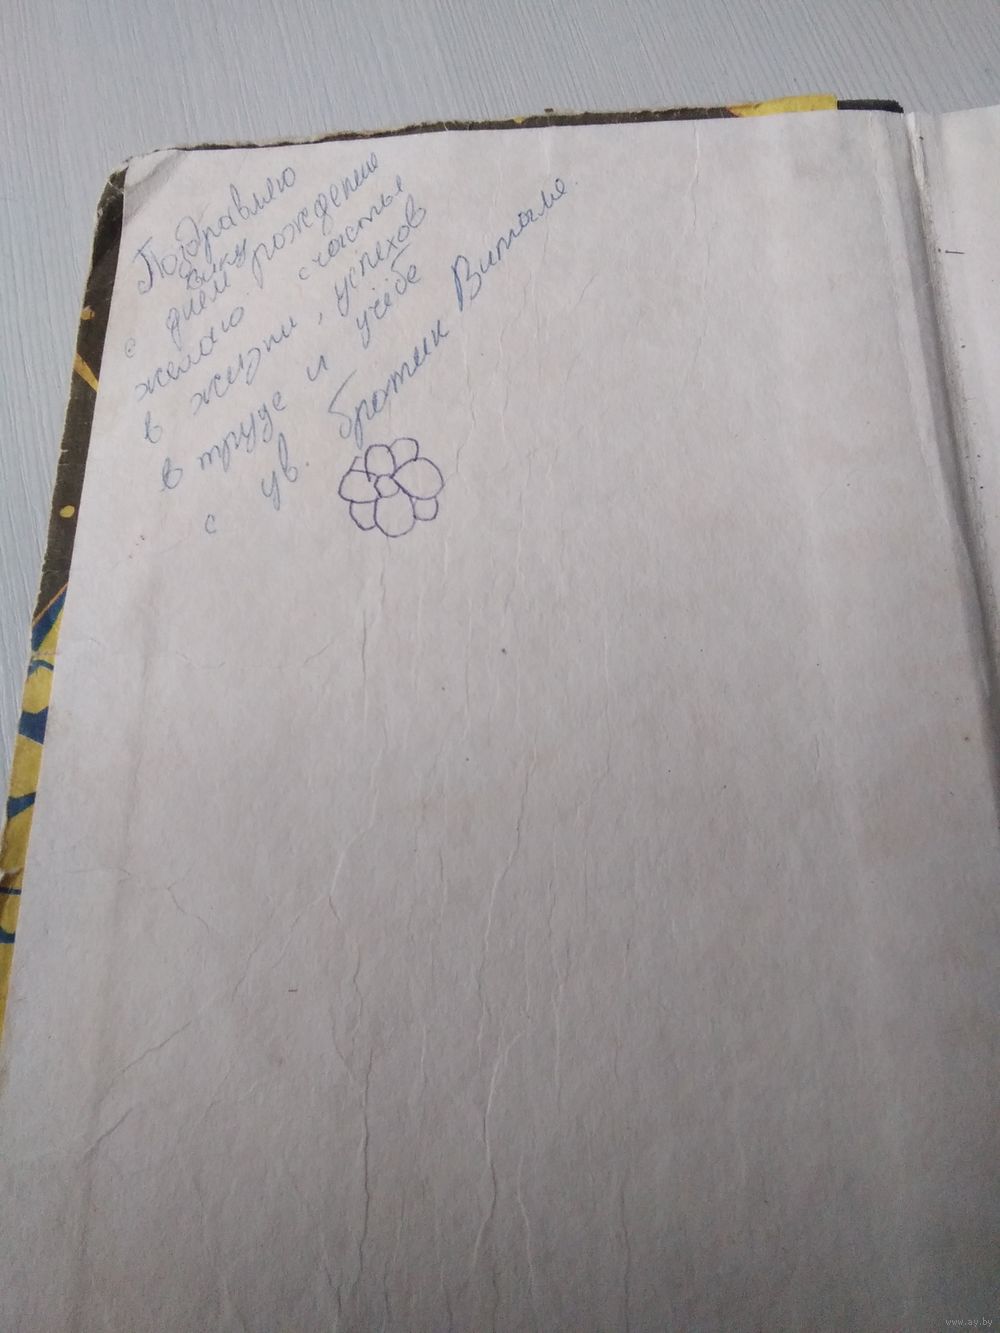 Поздравляю
Вику
с днём рождение
желаю счастья
в жизни, успехов
в труде и учёбе
с ув. братик Виталя.
www.ay.by